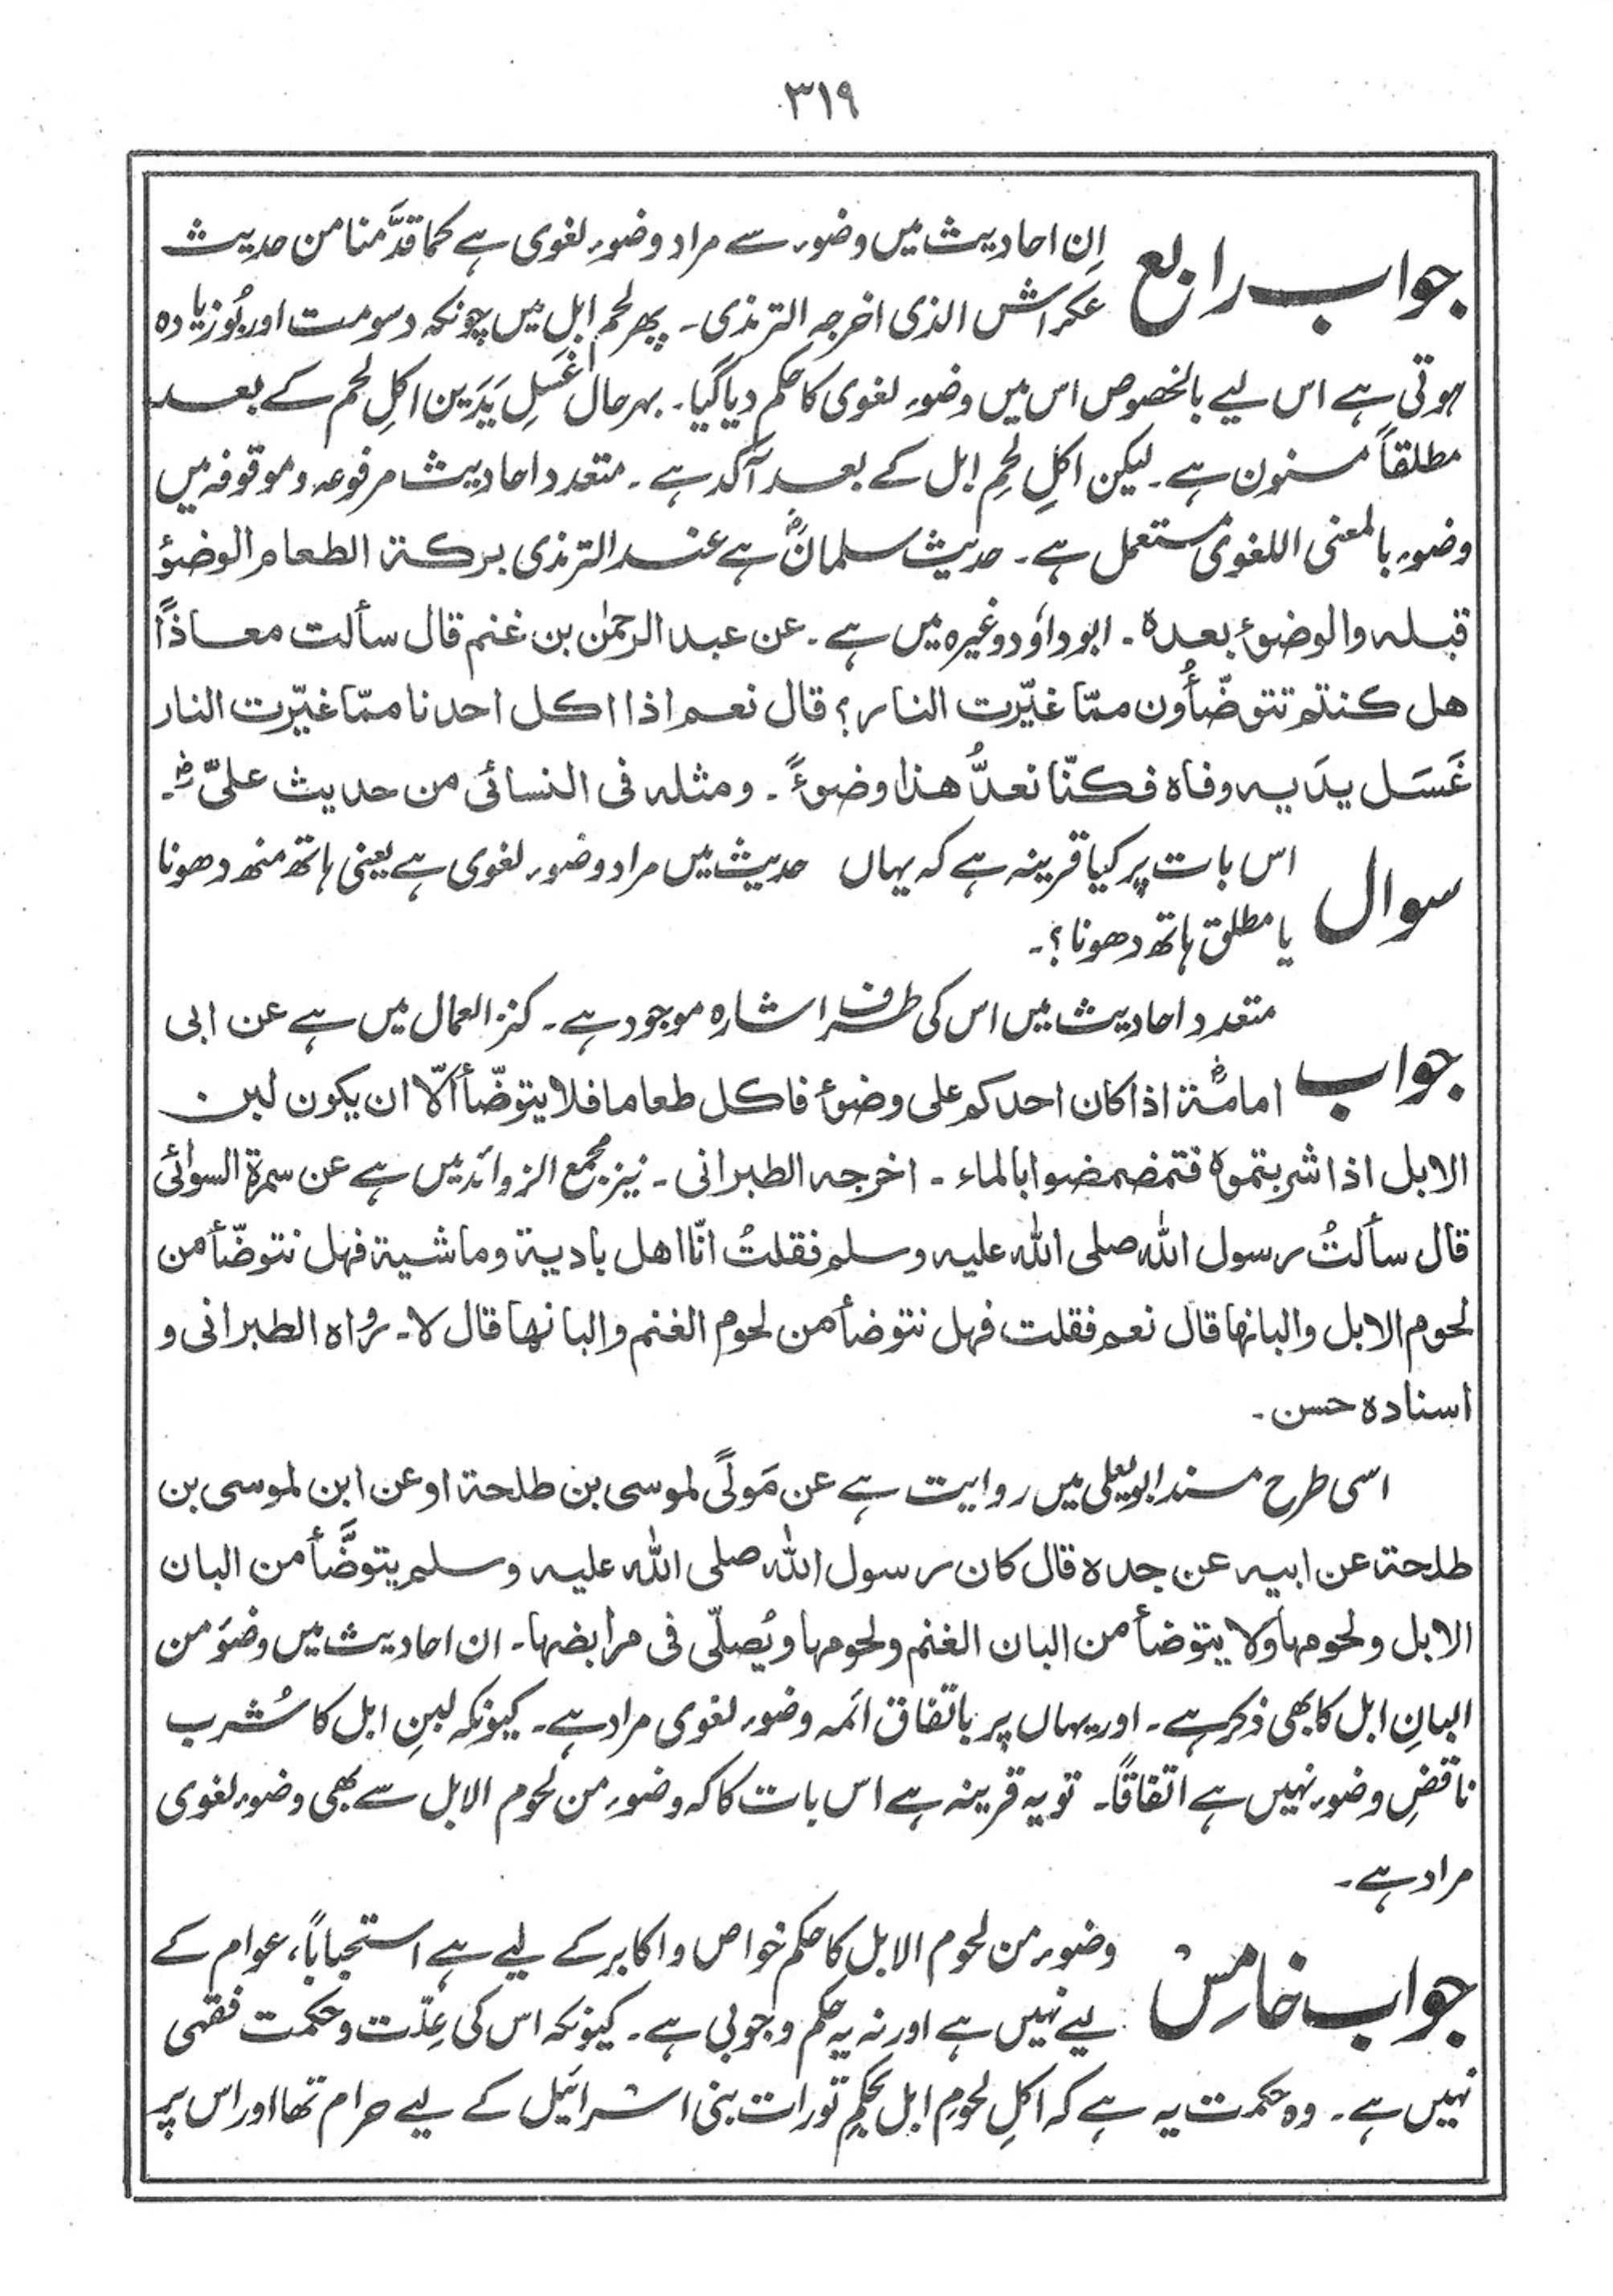 ۳۱۹
جواب رابع
اِن احادیث میں وضوء سے مراد وضوءِ لغوی ہے کما قدَّمنا من حدیث
عکراش الذی اخرجہ الترمذی۔ پھر لحم ابل میں چونکہ دسومت اور بُو زیادہ
ہوتی ہے اس لیے بالخصوص اس میں وضوءِ لغوی کا حکم دیا گیا۔ بہرحال غَسلِ یَدَین اکلِ لحم کے بعد
مطلقاً مسنون ہے۔ لیکن اکلِ لحمِ ابل کے بعد آکد ہے۔ متعدد احادیث مرفوعہ و موقوفہ میں
وضوء بالمعنی اللغوی مستعمل ہے۔ حدیث سلمانؓ ہے عند الترمذی برکۃ الطعام الوضوٴ
قبلہ والوضوٴ بعدہ۔ ابوداوٗد وغیرہ میں ہے۔ عن عبد الرحمٰن بن غنم قال سألت معاذاً
ھل کنتم تتوضّأُون ممّا غیّرت النار؟ قال نعم اذا اکل احدنا ممّا غیّرت النار
غَسَل یدَیہ وفاہ فکنّا نعدُّ ھذا وضوءً۔ ومثلہ فی النسائی من حدیث علیّؓ۔
سوال
اس بات پر کیا قرینہ ہے کہ یہاں حدیث میں مراد وضوء لغوی ہے یعنی ہاتھ منھ دھونا
یا مطلق ہاتھ دھونا؟۔
جواب
متعدد احادیث میں اس کی طرف اشارہ موجود ہے۔ کنز العمال میں ہے عن ابی
امامۃؓ اذا کان احدکم علی وضوٴ فاکل طعاما فلا یتوضّأ الّا ان یکون لبن
الابل اذا شربتموہ فتمضمضوا بالماء۔ اخرجہ الطبرانی۔ نیز مجمع الزوائد میں ہے عن سمرۃ السوائی
قال سألتُ رسول اللہ صلی اللہ علیہ وسلم فقلتُ انّا اھل بادیۃ وماشیۃ فہل نتوضّأ من
لحوم الابل والبانھا قال نعم فقلت فہل نتوضأ من لحوم الغنم والبانھا قال لا۔ رواہ الطبرانی و
اسنادہ حسن۔
اسی طرح مسند ابویعلی میں روایت ہے عن مَولًی لموسی بن طلحۃ او عن ابن لموسی بن
طلحۃ عن ابیہ عن جدہ قال کان رسول اللہ صلی اللہ علیہ وسلم یتوضَّأ من البان
الابل ولحومہا ولا یتوضأ من البان الغنم ولحومہا ویُصلّی فی مرابضہا۔ ان احادیث میں وضوٴ من
البانِ ابل کا بھی ذکر ہے۔ اور یہاں پر باتّفاق ائمہ وضوء لغوی مراد ہے۔ کیونکہ لبنِ ابل کا شُرب
ناقضِ وضوء نہیں ہے اتفاقاً۔ تو یہ قرینہ ہے اس بات کا کہ وضوء من لحوم الابل سے بھی وضوء لغوی
مراد ہے۔
جواب خامسؔ
وضوء من لحوم الابل کا حکم خواص و اکابر کے لیے ہے استحباباً، عوام کے
لیے نہیں ہے اور نہ یہ حکم وجوبی ہے۔ کیونکہ اس کی عِلّت و حکمت فقہی
نہیں ہے۔ وہ حکمت یہ ہے کہ اکلِ لحومِ ابل بحکمِ تورات بنی اسرائیل کے لیے حرام تھا اور اس پر